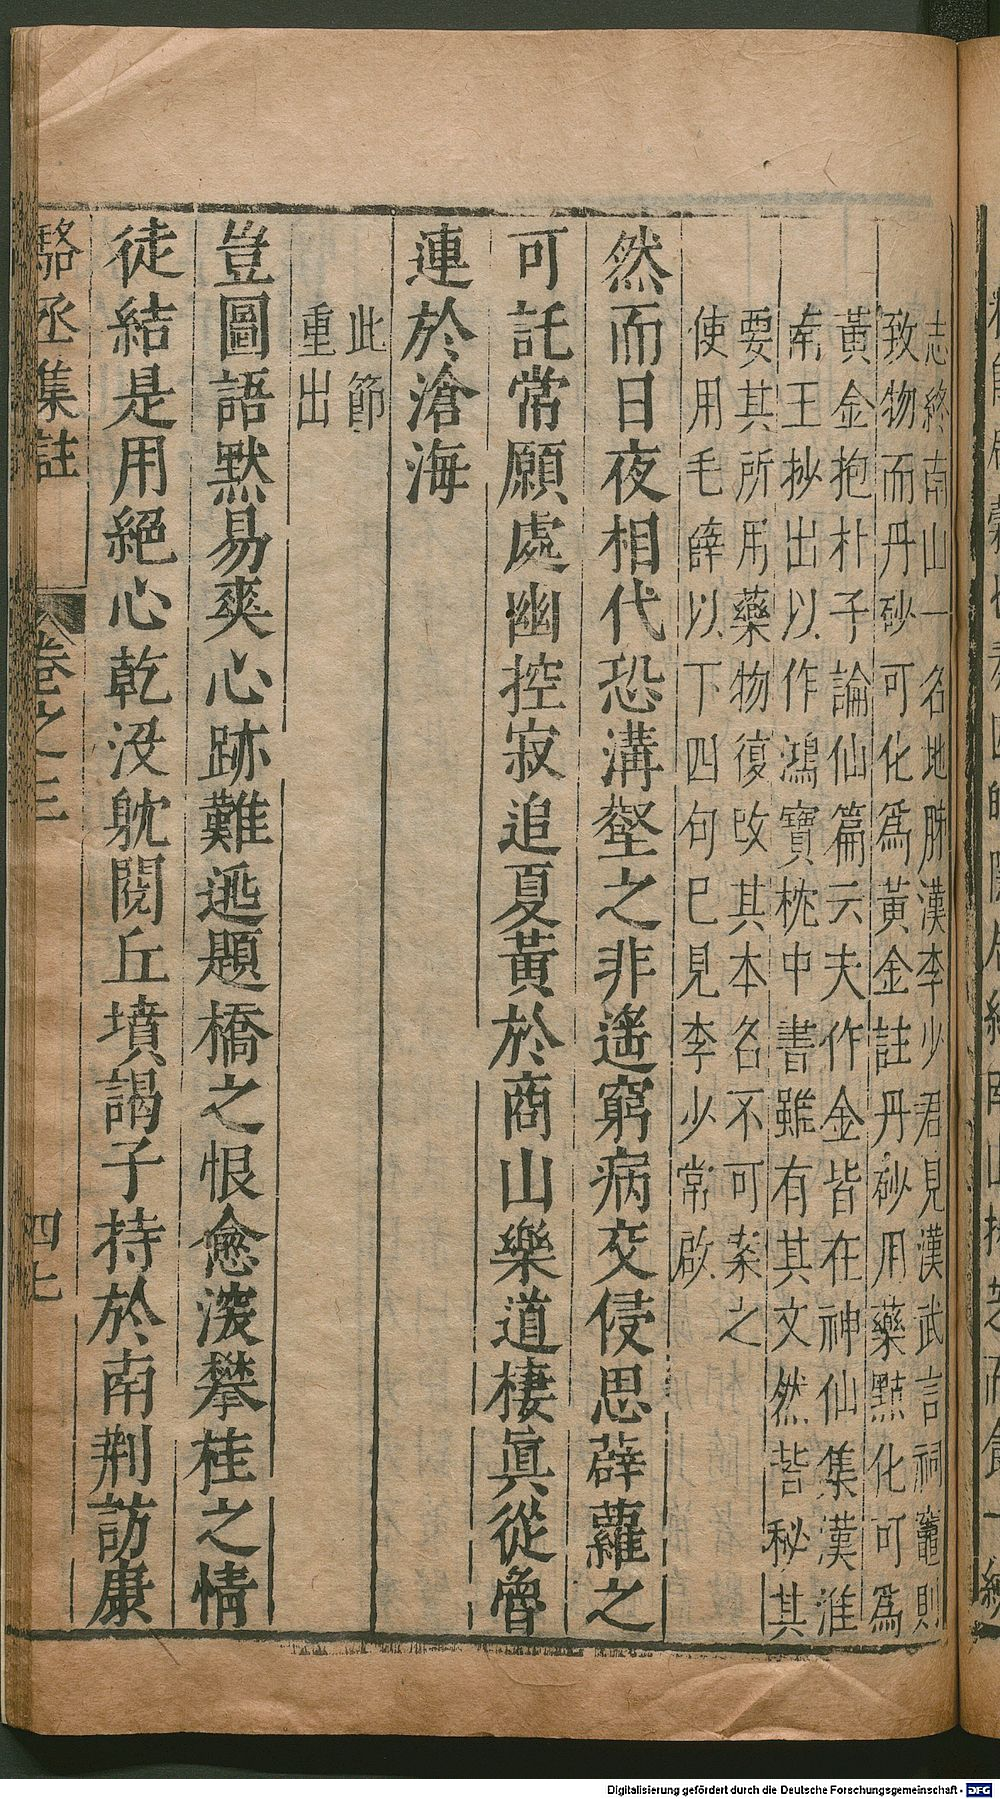 志終南山一名地肺漢李少君見漢武言祠竈則
致物而丹砂可化爲黃金註丹砂用藥點化可爲
黃金抱朴子論仙篇云夫作金皆在神仙集漢淮
南王抄出以作鴻寶枕中書雖有其文然皆秘其
要其所用藥物復改其本名不可案之
使用毛薛以下四句已見李少常啟
然而日夜相代恐溝壑之非遙窮病交侵思薜蘿之
可託常願處幽控寂追夏黃於商山樂道棲眞從魯
連於滄海
此節
重出
豈圖語默易爽心跡難逃題橋之恨愈深攀桂之情
徒結是用絕心乾沒躭閱丘墳謁子持於南荆訪康
駱丞集註
卷之三
四七
Digitalisierung gefördert durch die Deutsche Forschungsgemeinschaft - DFG